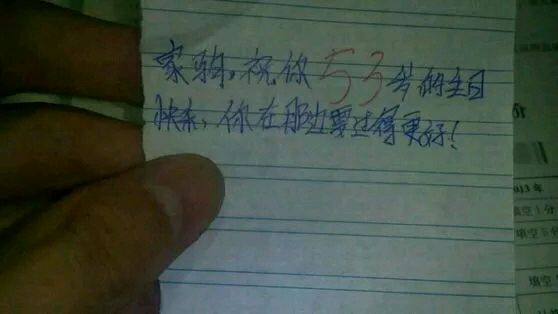 家驹，祝你53岁的生日
快乐，你在那边要过得更好！
013年
填空1分
填空5分
填空